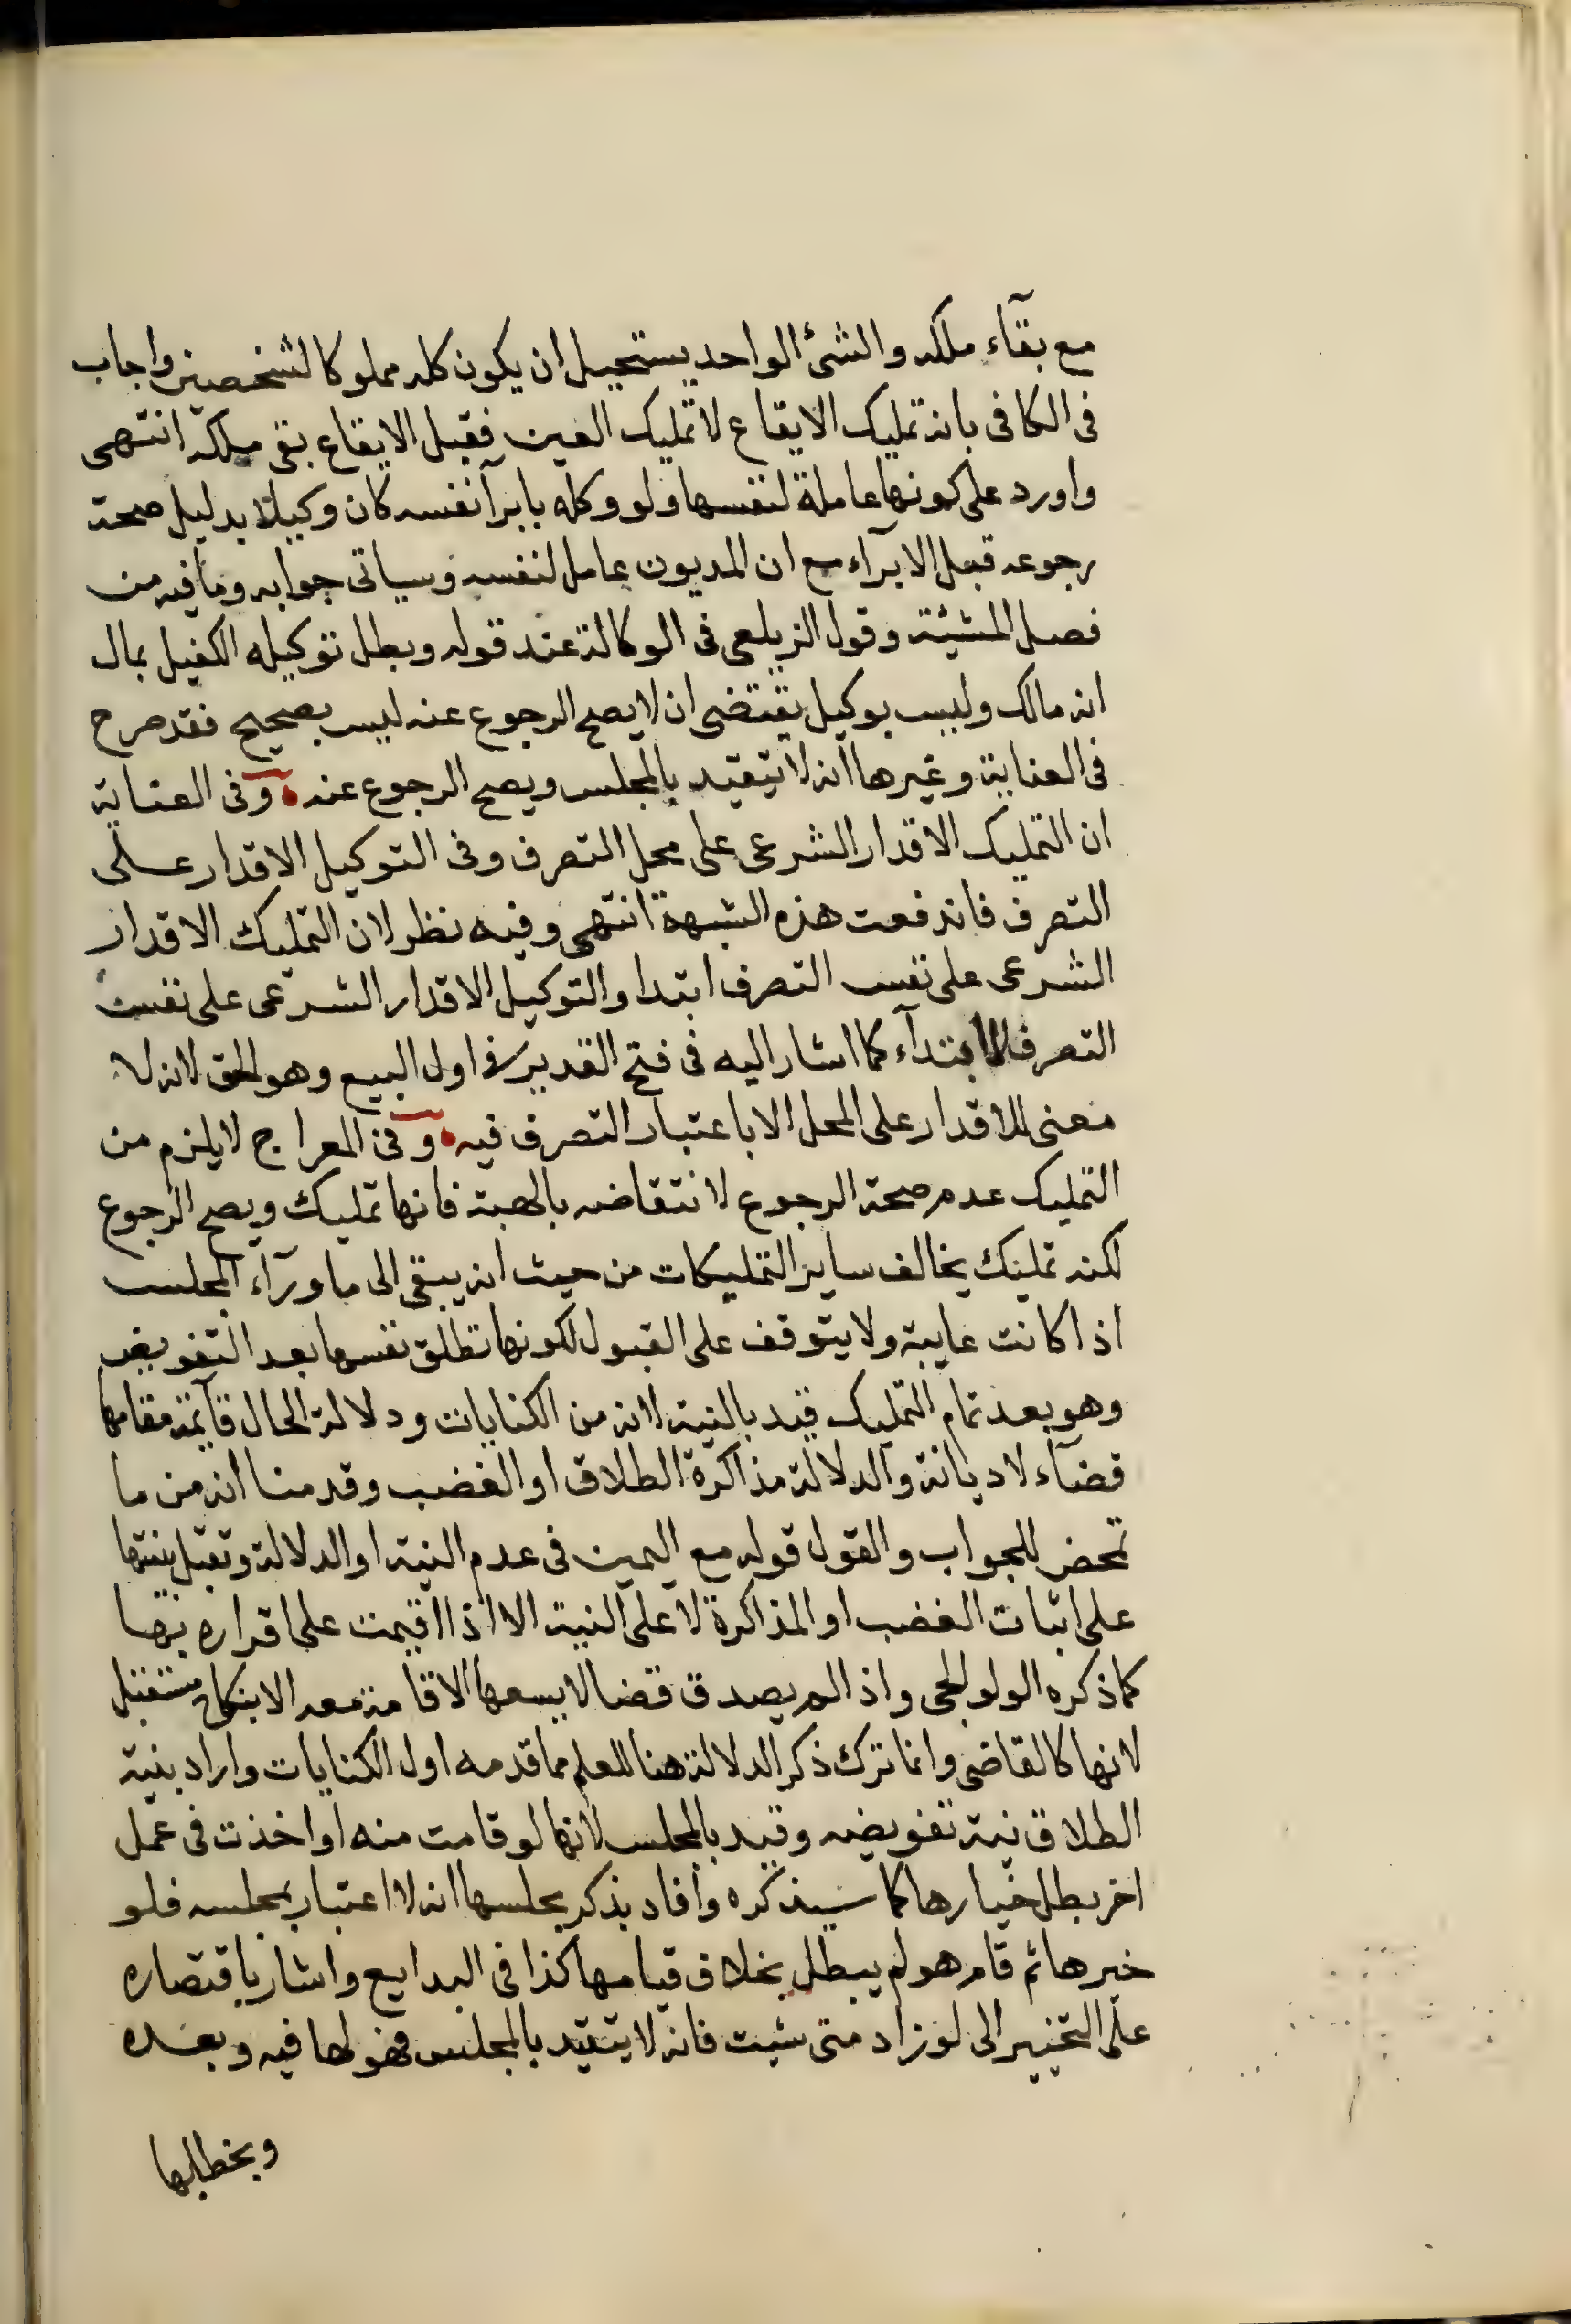 مع بقآء ملكه والشئ الواحد يستحيل ان يكون كله مملوكا لشخصين واجاب
فى الكافى بانه تمليك الايقاع لا تمليك العين فقبل الايقاع بقى ملكه انتهى
واورد على كونها عاملة لنفسها ولو وكله بابرآ نفسه كان وكيلا بدليل صحة
رجوعه قبل الابرآء مع ان المديون عامل لنفسه وسياتى جوابه وما فيه من
فصل المشيئة وقول الزيلعى فى الوكالة عند قوله وبطل توكيله الكفيل بمال
انه مالك وليس بوكيل يقتضى ان لا يصح الرجوع عنه ليس بصحيح فقد صرح
فى العناية وغيرها انه لا يتقيد بالمجلس ويصح الرجوع عنه وفى العناية
ان التمليك الاقدار الشرعى على محل التصرف وفى التوكيل الاقدار على
التصرف فاندفعت هذه الشبهة انتهى وفيه نظر لان التمليك الاقدار
الشرعى على نفس التصرف ابتدا والتوكيل الاقدار الشرعى على نفس
التصرف لا ابتدآء كما اشار اليه فى فتح القدير فى اول البيع وهو الحق لانه لا
معنى للاقدار على المحل الا باعتبار التصرف فيه وفى المعراج لا يلزم من
التمليك عدم صحة الرجوع لانتقاضه بالهبة فانها تمليك ويصح الرجوع
لكنه تمليك يخالف ساير التمليكات من حيث انه يبقى الى ما ورآء المجلس
اذا كانت غايبة ولا يتوقف على القبول لكونها تطلق نفسها بعد التفويض
وهو بعد تمام التمليك قيد بالنية لانه من الكنايات ودلالة الحال قآئمة مقامها
قضآء لا ديانة والدلالة مذاكرة الطلاق او الغضب وقدمنا انه من ما
تمحض للجواب والقول قوله مع اليمين فى عدم النية او الدلالة وتقبل بينتها
على اثبات الغضب او المذاكرة لا على النية الا اذا اقيمت على اقراره بها
كما ذكره الولوالجى واذا لم يصدق قضا لا يسعها الاقامة معه الا بنكاح مستقبل
لانها كالقاضى وانما ترك ذكر الدلالة هنا للعلم مما قدمه اول الكنايات واراد بنية
الطلاق نية تفويضه وقيد بالمجلس لانها لو قامت منه او اخذت فى عمل
اخر بطل خيارها كما سيذكره وافاد بذكر مجلسها انه لا اعتبار بمجلسه فلو
خيرها ثم قام هو لم يبطل بخلاف قيامها كذا فى البدايع واشار باقتصاره
على التخيير الى لو زاد متى شيت فانه لا يتقيد بالمجلس فهو لها فيه وبعده